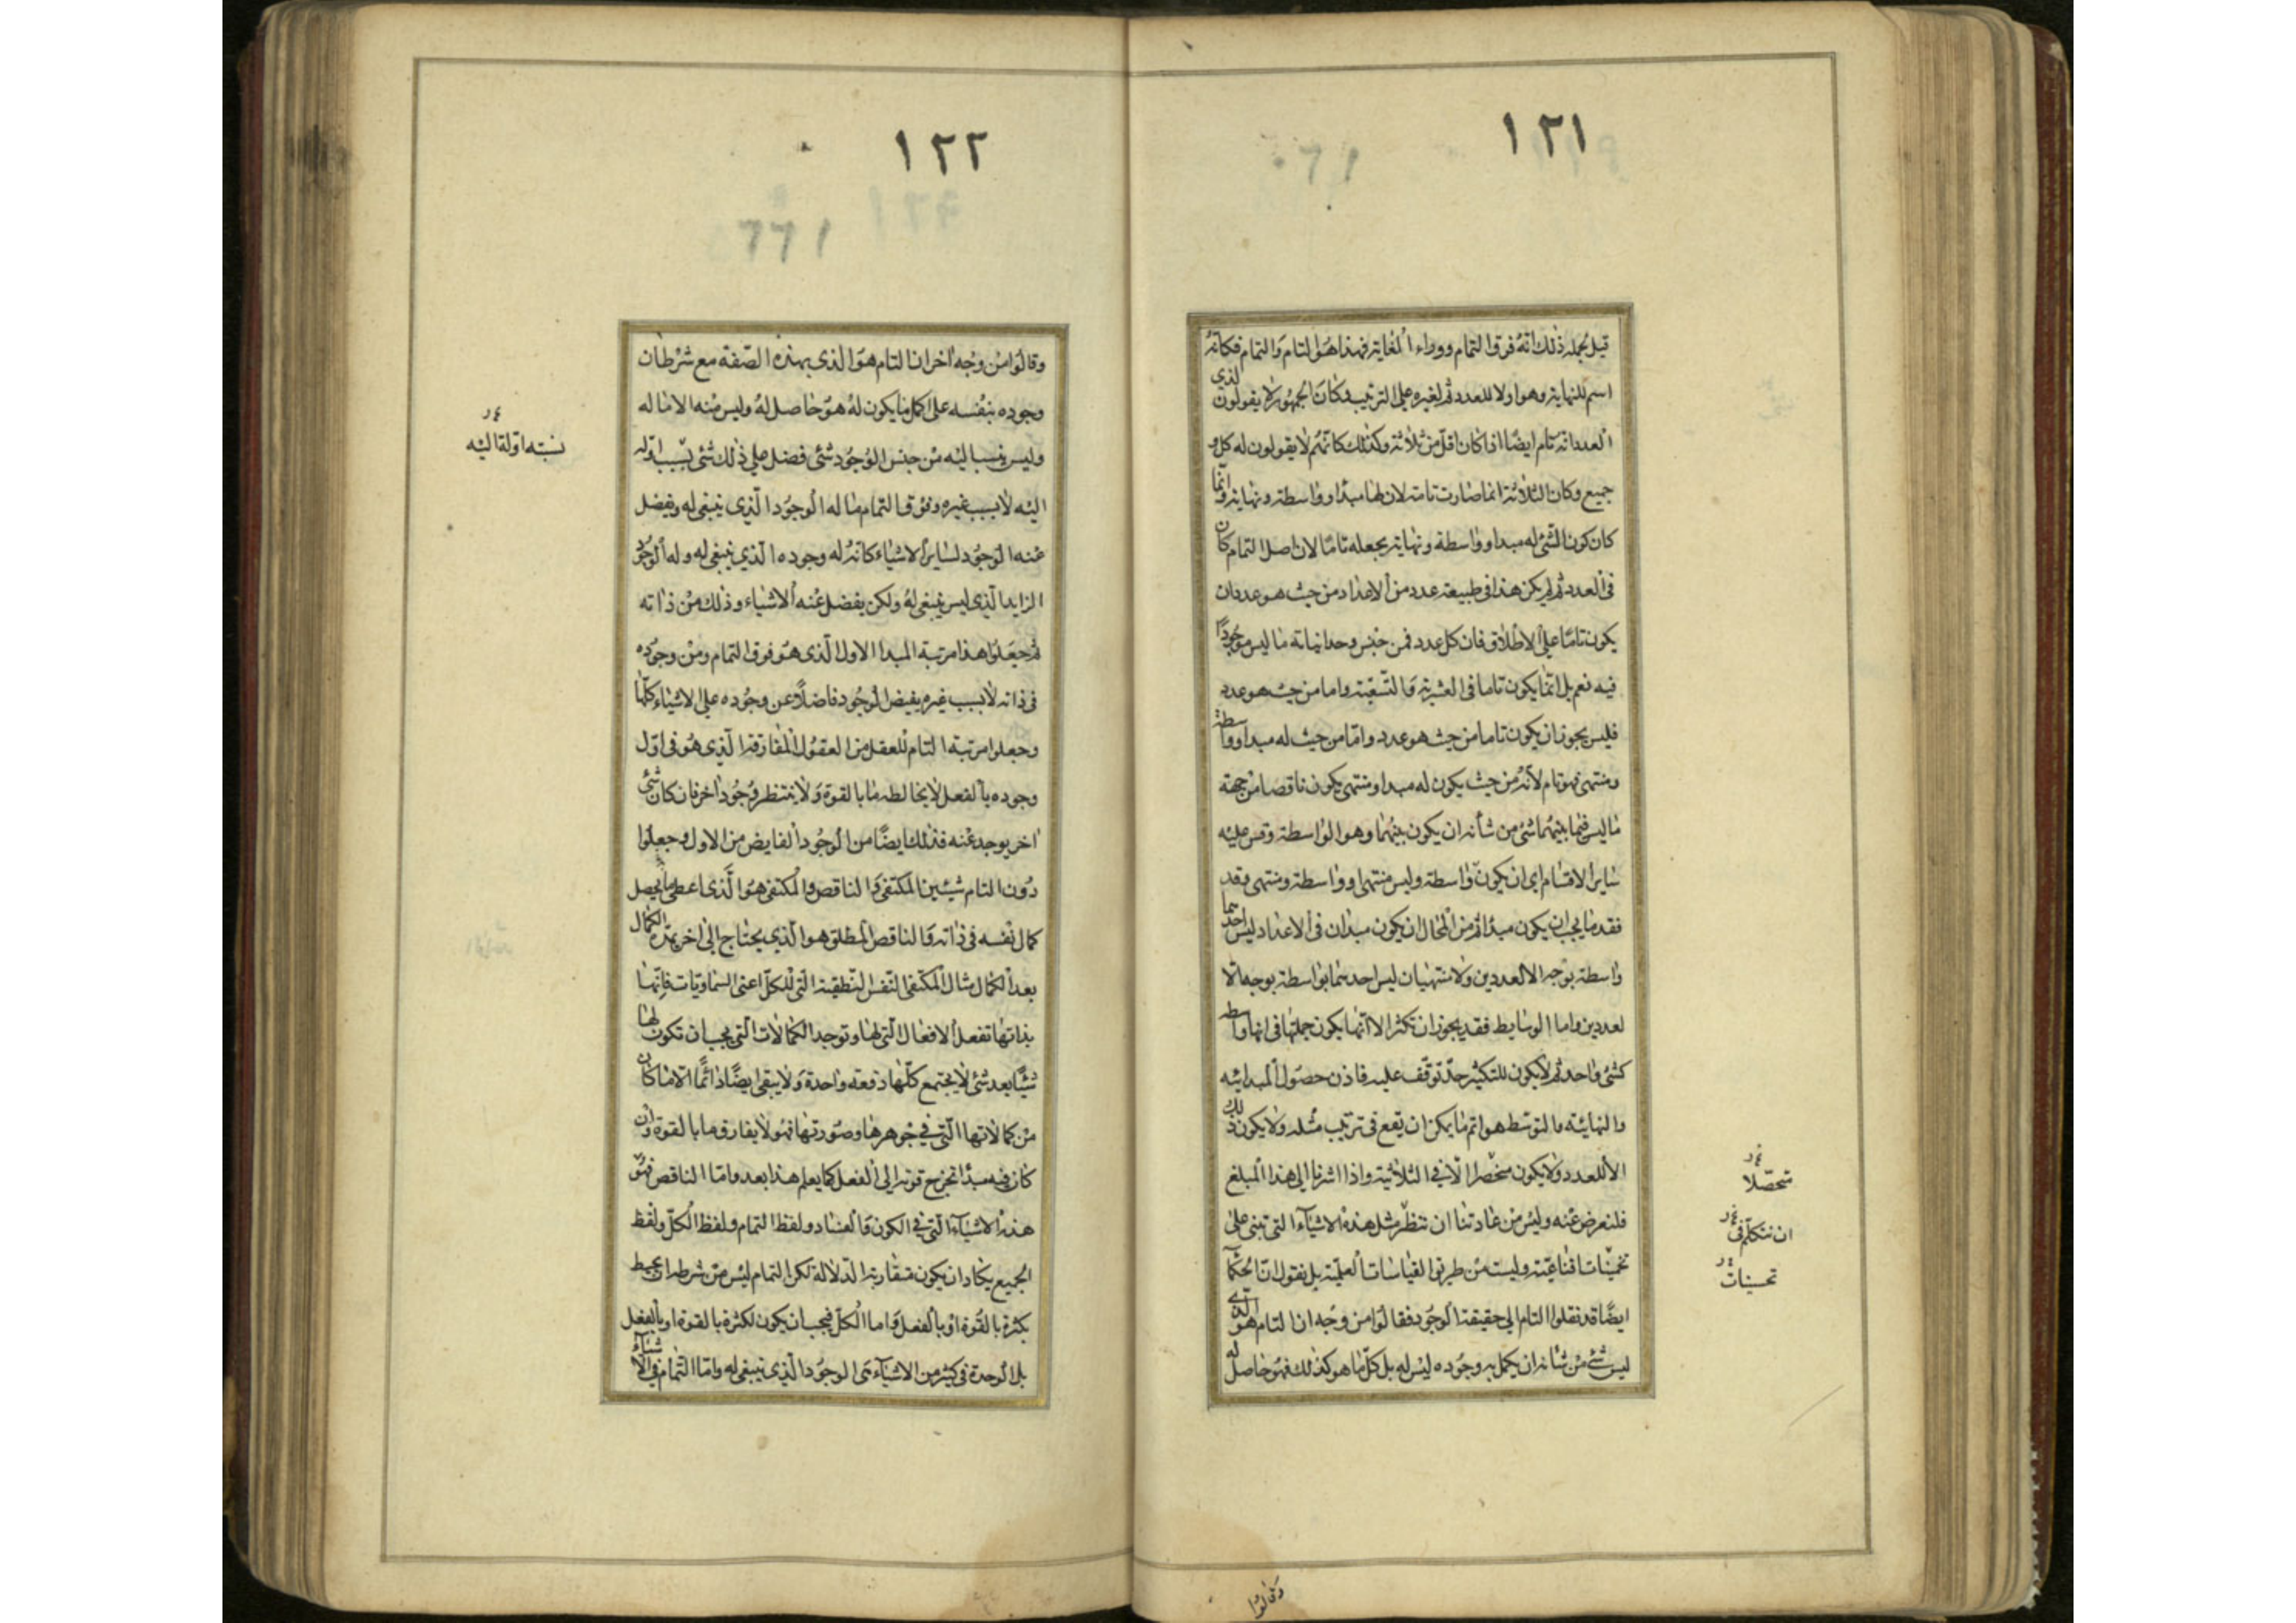 ١٢١
قيل لجملة ذلك انه فوق التمام ووراء الغاية فهذا هو التام والتمام فكانه
اسم للنهاية وهو اولا للعدد ثم لغيره على الترتيب وكان الجمهور لا يقولون لذي
العدد انه تام ايضا اذا كان اقل من ثلاثة وكذلك كانهم لا يقولون له كل و
جميع وكان الثلاثة انما صارت تامة لان لها مبدأ وواسطة ونهاية وانما
كان كون الشئ له مبدا وواسطة ونهاية يجعله تاما لان اصل التمام كان
فى العدد ثم لم يكن هذا فى طبيعة عدد من الاعداد من حيث هو عدد ان
يكون تاما على الاطلاق فان كل عدد فمن جنس وحدانياته ما ليس موجودا
فيه نعم بل انما يكون تاما فى العشرية والتسعية واما من حيث هو عدد
فليس يجوز ان يكون تاما من حيث هو عدد واما من حيث له مبدا وواسطة
ومنتهى فهو تام لانه من حيث يكون له مبدا ومنتهى يكون ناقصا من جهة
ما ليس فيما بينهما شئ من شأنه ان يكون بينهما وهو الواسطة وقس عليه
ساير الاقسام اى ان يكون واسطة وليس منتهى او واسطة ومنتهى وقد
فقد ما يجب ان يكون مبدأ ثم من المحال ان يكون مبدان فى الاعداد ليس احدهما
واسطة بوجه الا لعددين ولا منتهيان ليس احدهما بواسطة بوجه الا
لعددين واما الوسايط فقد يجوز ان تكثر الا انها يكون جملتها فى انها واسطة
كشئ واحد ثم لا يكون للتكثير حد توقف عليه فاذن حصول المبدائيه
والنهائيه والتوسط هو اتم ما يمكن ان يقع فى ترتيب مثله ولا يكون ذلك
الا للعدد ولا يكون منحصرا الا فى الثلاثية واذا اشرنا الى هذا المبلغ
فلنعرض عنه وليس من عادتنا ان ننظر مثل هذه الاشياء التى تبنى على
تخمينات اقناعية وليست من طريق القياسات العلمية بل نقول ان الحكماء
ايضا قد نقلوا التام الى حقيقة الوجود فقالوا من وجه ان التام هو الذى
ليس شئ من شانه ان يكمل به وجوده ليس له بل كل ما هو كذلك فهو حاصل له
متحصلا
ان نتكلم فى
تحسينات
وقالوا
١٢٢
وقالوا من وجه اخر ان التام هو الذى بهذه الصفة مع شرط ان
وجوده بنفسه على اكمل ما يكون له هو حاصل له وليس منه الا ما له
وليس ينسب اليه من جنس الوجود شئ فضل على ذلك شئ بسبب اوله
اليه لا بسبب غيره وفوق التمام ما له الوجود الذى ينبغى له ويفضل
عنه الوجود لساير الاشياء كانه له وجوده الذى ينبغى له وله الوجود
الزايد الذى ليس ينبغى له ولكن يفضل عنه الاشياء وذلك من ذاته
ثم جعلوا هذا مرتبة المبدا الاول الذى هو فوق التمام ومن وجوده
فى ذاته لا بسبب غيره يفيض الوجود فاضلا عن وجوده على الاشياء كلها
وجعلوا مرتبة التام للعقل من العقول المفارقة الذى هو فى اول
وجوده بالفعل لا يخالطه ما بالقوة ولا ينتظر وجودا اخر فان كان شئ
اخر يوجد عنه فذلك ايضا من الوجود الفايض من الاول وجعلوا
دون التام شيئين المكتفى والناقص والمكتفى هو الذى اعطى ما به يحصل
كمال نفسه فى ذاته والناقص المطلق هو الذى يحتاج الى اخر يمده الكمال
بعد الكمال مثال المكتفى النفس النطقية التى للكل اعنى السماويات فانها
بذاتها تفعل الافعال التى لها وتوجد الكمالات التى يجب ان تكون لها
شيئا بعد شئ لا يجتمع كلها دفعة واحدة ولا يبقى ايضا دائما الا ما كان
من كمالاتها التى فى جوهرها وصورتها فهو لا يفارق ما بالقوة وان
كان فيه مبدأ تخرج قوته الى الفعل كما يعلم هذا بعد واما الناقص فهو
هذه الاشياء التى فى الكون والفساد ولفظ التمام ولفظ الكل ولفظ
الجميع يكاد ان يكون متقاربة الدلالة لكن التمام ليس من شرطه ان يحيط
بكثرة بالقوة او بالفعل واما الكل فيجب ان يكون لكثرة بالقوة او بالفعل
بل الوحدة فى كثير من الاشياء هى الوجود الذى ينبغى له واما التمام فى الاشياء
نسبته اوله اليه